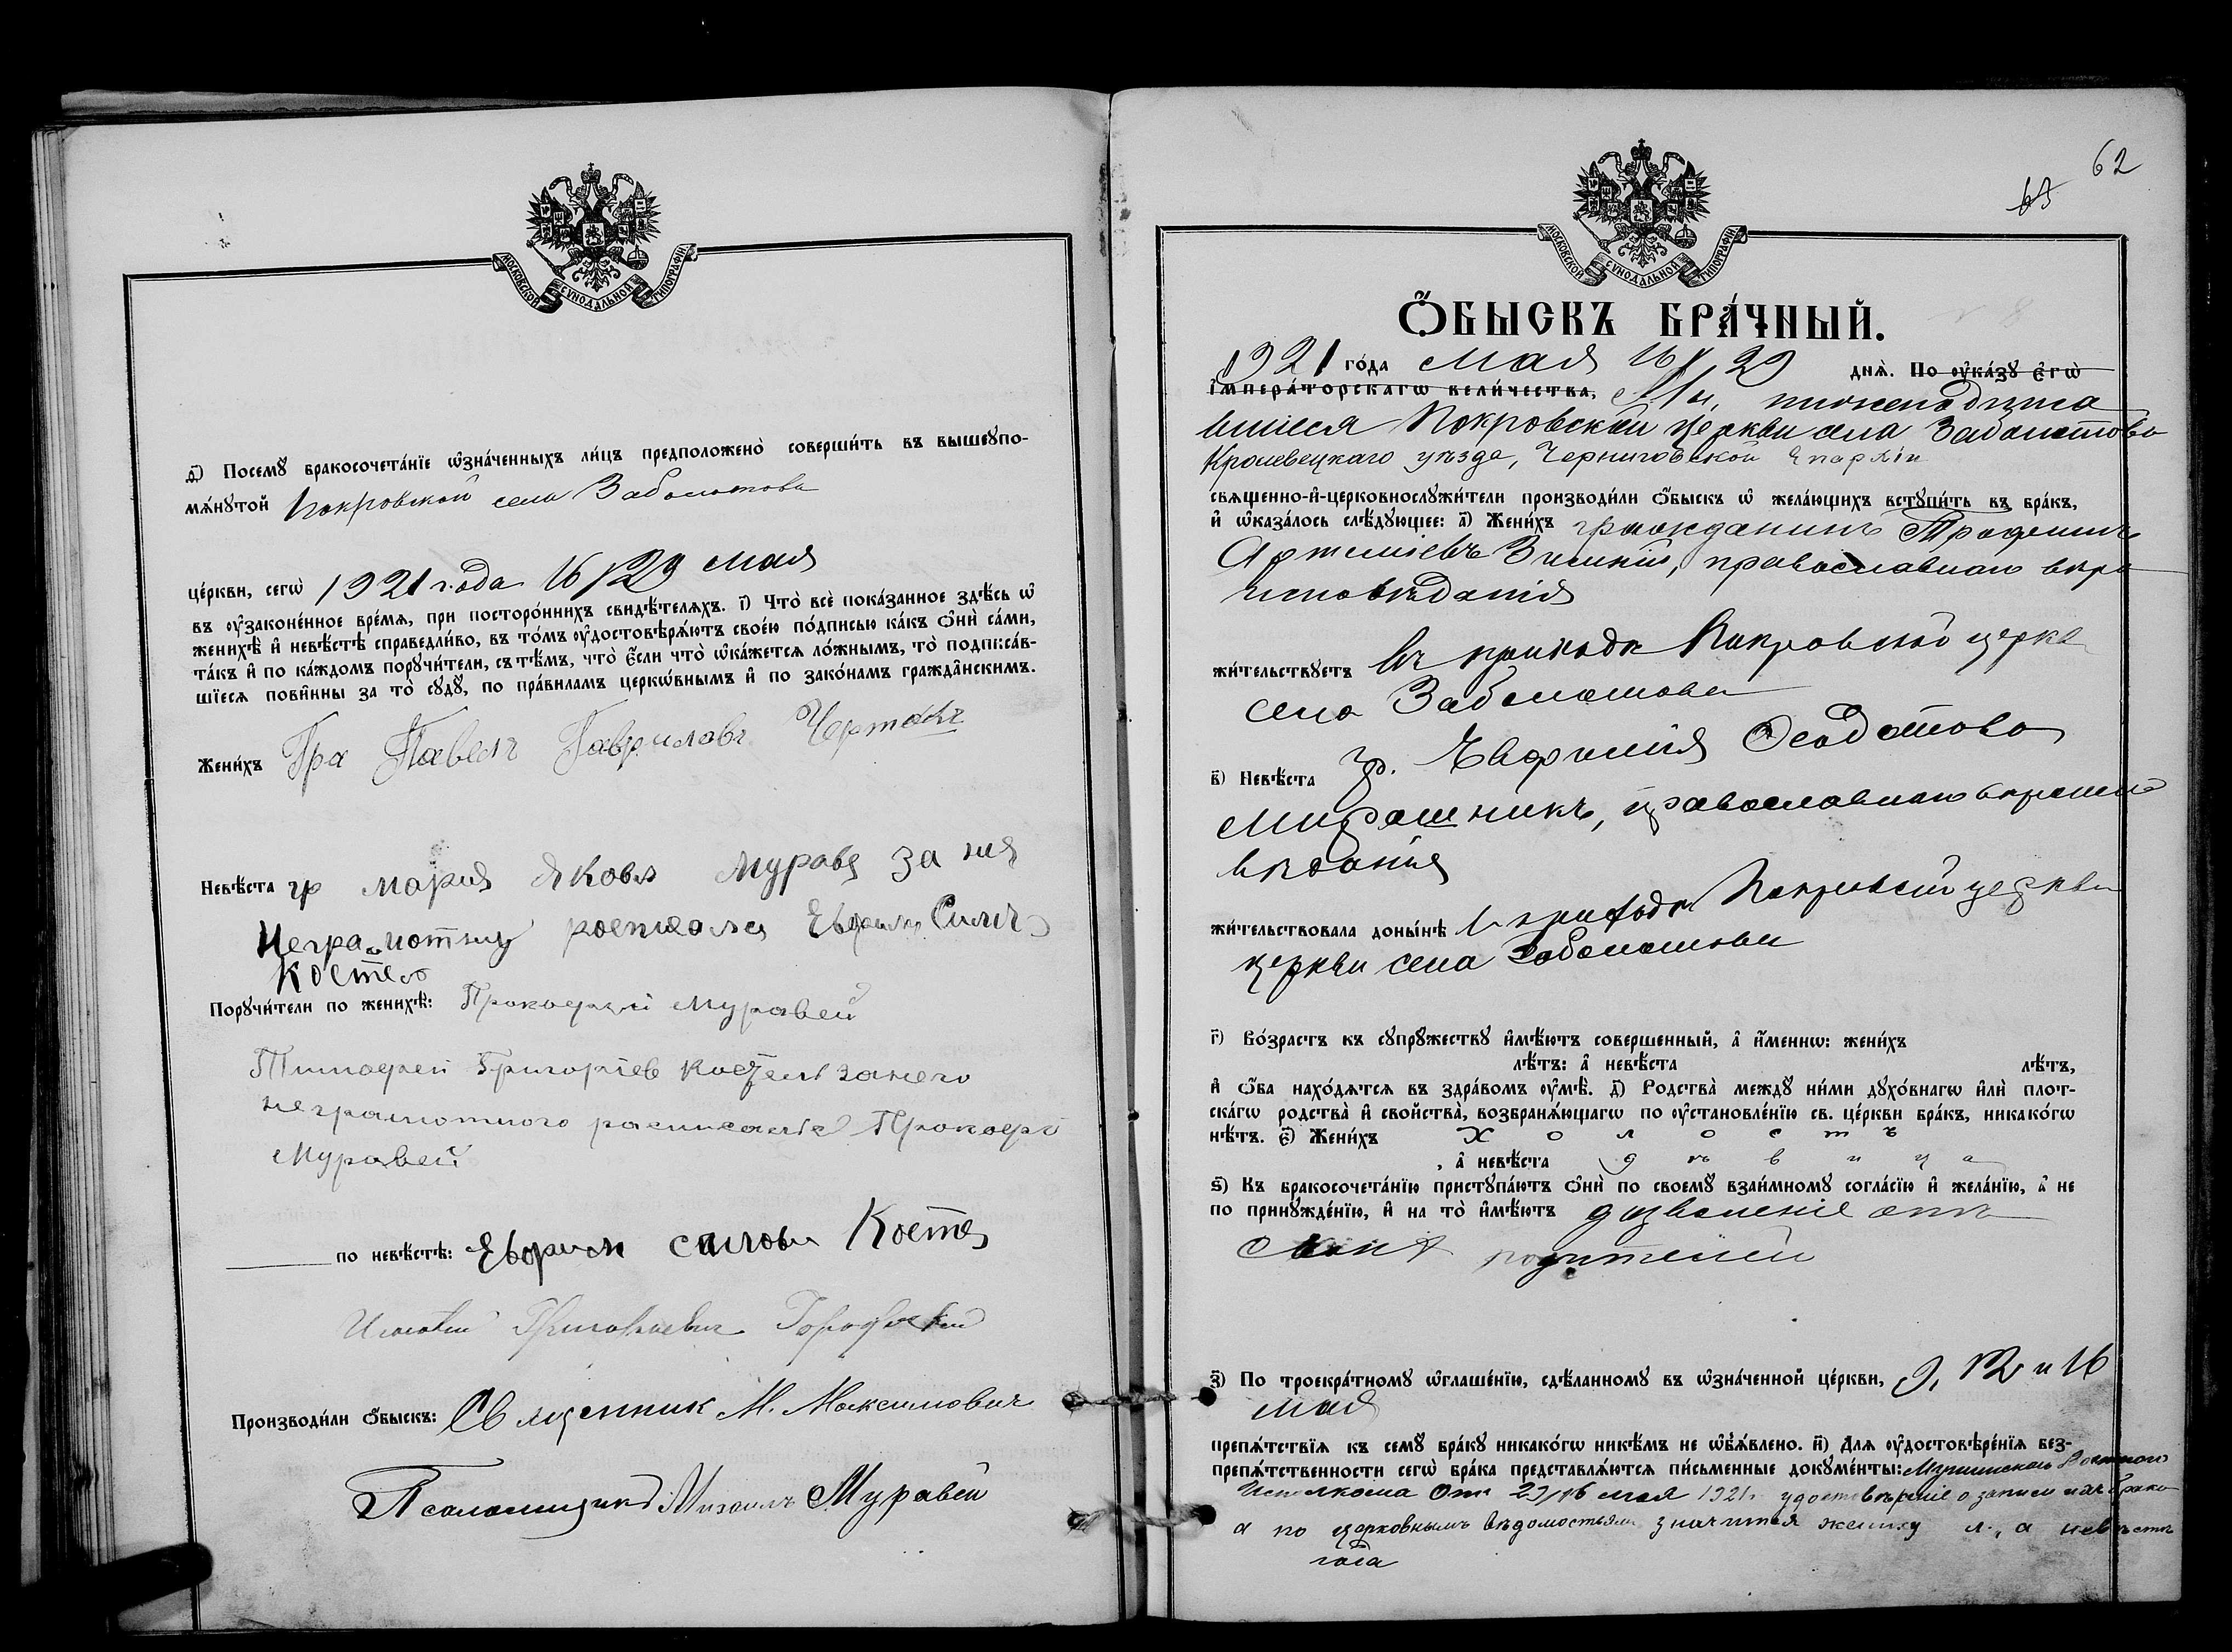 МОСКОВСКОЙ СѴНОДАЛЬНОЙ ТИПОГРАФІИ
ѳ҃) Посемꙋ̀ бракосочета́нїе ѡ҆зна́ченныхъ ли́цъ предположено̀ соверши́ть въ вышеꙋпо-
мѧ́нꙋтой Покровской села Заболотова
це́ркви, сегѡ̀ 1921 года 16/29 мая
въ ᲂу҆законе́нное вре́мѧ, при посторо́ннихъ свидѣ́телѧхъ. і҃) Что̀ всѐ пока́занное здѣ́сь ѡ҆
женихѣ̀ и҆ невѣ́стѣ справедли́во, въ то́мъ ᲂу҆достовѣрѧ́ютъ свое́ю по́дписью ка́къ ѻ҆нѝ са́ми,
та́къ и҆ по ка́ждомъ порꙋчи́тели, съ тѣ́мъ, что̀ є҆́сли что̀ ѡ҆ка́жетсѧ ло́жнымъ, то̀ подписа́в-
шїесѧ пови́нны за то̀ сꙋдꙋ̀, по пра́виламъ церкѡ́внымъ и҆ по зако́намъ гражда̑нскимъ.
Жени́хъ Гра Павелъ Гавриловъ Чертокъ
Невѣ́ста гр Мария Яковл Муравя за нея
Неграмотную росписался Евфим Силич
Костел
Порꙋчи́тели по женихѣ̀: Прокофий Муравей
Тимофей Григоріев Костел за него
неграмотного расписался Прокофи
Муравей
по невѣ́стѣ: Евфим Силови Костел
Григориевич Городской
Производи́ли ѻ҆́быскъ: Священник М. Максимовичъ
Псаломщикъ Михаилъ Муравей
62
65
МОСКОВСКОЙ СѴНОДАЛЬНОЙ ТИПОГРАФІИ
Ѻ҆́БЫСКЪ БРА́ЧНЫЙ.
1921 го́да мая 16/29 днѧ̀. По ᲂу҆ка́зꙋ є҆гѡ̀
і҆мпера́торскагѡ вели́чества, Мы, нижеподписа
вшіеся Покровской церкви села Заболотова
Кролевецкаго уѣзда, Черниговской Епархіи
свѧщенно-и҆-церковнослꙋжи́тели производи́ли ѻ҆́быскъ ѡ҆ жела́ющихъ встꙋпи́ть въ бра́къ,
и҆ ѡ҆каза́лось слѣ́дꙋющее: а҃) Жени́хъ гражданинъ Трофимъ
Артеміевъ Зимній, православнаго вѣро
исповѣданія
жи́тельствꙋетъ въ приходѣ Покровской церкв
села Заболотова
в҃) Невѣ́ста гр. Евфимія Феодотова
Мирошникъ, православнаго вѣроиспо
вѣданія
жи́тельствовала доны́нѣ въ приходѣ Покровской церкви
церкви села Заболотови
г҃) Во́зрастъ къ сꙋпрꙋ́жествꙋ и҆мѣ́ютъ соверше́нный, а҆ и҆́меннѡ: жени́хъ
лѣ́тъ: а҆ невѣ́ста лѣ́тъ,
и҆ ѻ҆́ба нахо́дѧтсѧ въ здра́вомъ ᲂу҆мѣ̀. д҃) Родства̀ междꙋ̀ ни́ми дꙋхо́внагѡ и҆лѝ плот-
ска́гѡ родства̀ и҆ свойства̀, возбранѧ́ющагѡ по ᲂу҆становле́нїю св. це́ркви бра́къ, никако́гѡ
нѣ́тъ. є҃) Жени́хъ холостъ
, а҆ невѣ́ста дѣвица
ѕ҃) Къ бракосочета́нїю пристꙋпа́ютъ ѻ҆нѝ по своемꙋ̀ взаи́мномꙋ согла́сїю и҆ жела́нїю, а҆ не
по принꙋжде́нїю, и҆ на то̀ и҆мѣ́ютъ дозволеніе отъ
своихъ родителей
з҃) По троекра́тномꙋ ѡ҆глаше́нїю, сдѣ́ланномꙋ въ ѡ҆зна́ченной це́ркви, 9, 12 и 16
мая
препѧ́тствїѧ къ семꙋ̀ бра́кꙋ никако́гѡ никѣ́мъ не ѡ҆б̾ѧ́влено. и҃) Длѧ ᲂу҆достовѣре́нїѧ без-
препѧ́тственности сегѡ̀ бра́ка представлѧ́ютсѧ пи́сьменные докꙋме́нты:
Исполкома отъ 29/16 мая 1921 г. удостовѣреніе о записи ихъ брака
а по церковнымъ вѣдомостямъ значится жениху л., а невѣстѣ
года